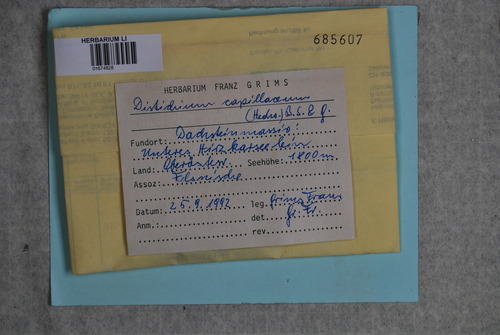 HERBARIUM LI
01574828
685607
HERBARIUM FRANZ GRIMS
Distichium capillaceum
(Hedw.) B.S. & G.
Fundort: Dachsteinmassiv:
Unteres Hirzkarseelein
Land: Oberösterr. Seehöhe: 1800 m
Assoz:
Datum: 25.9.1992 leg. Grims Franz
Anm.: det. Gr. Fr.
rev.